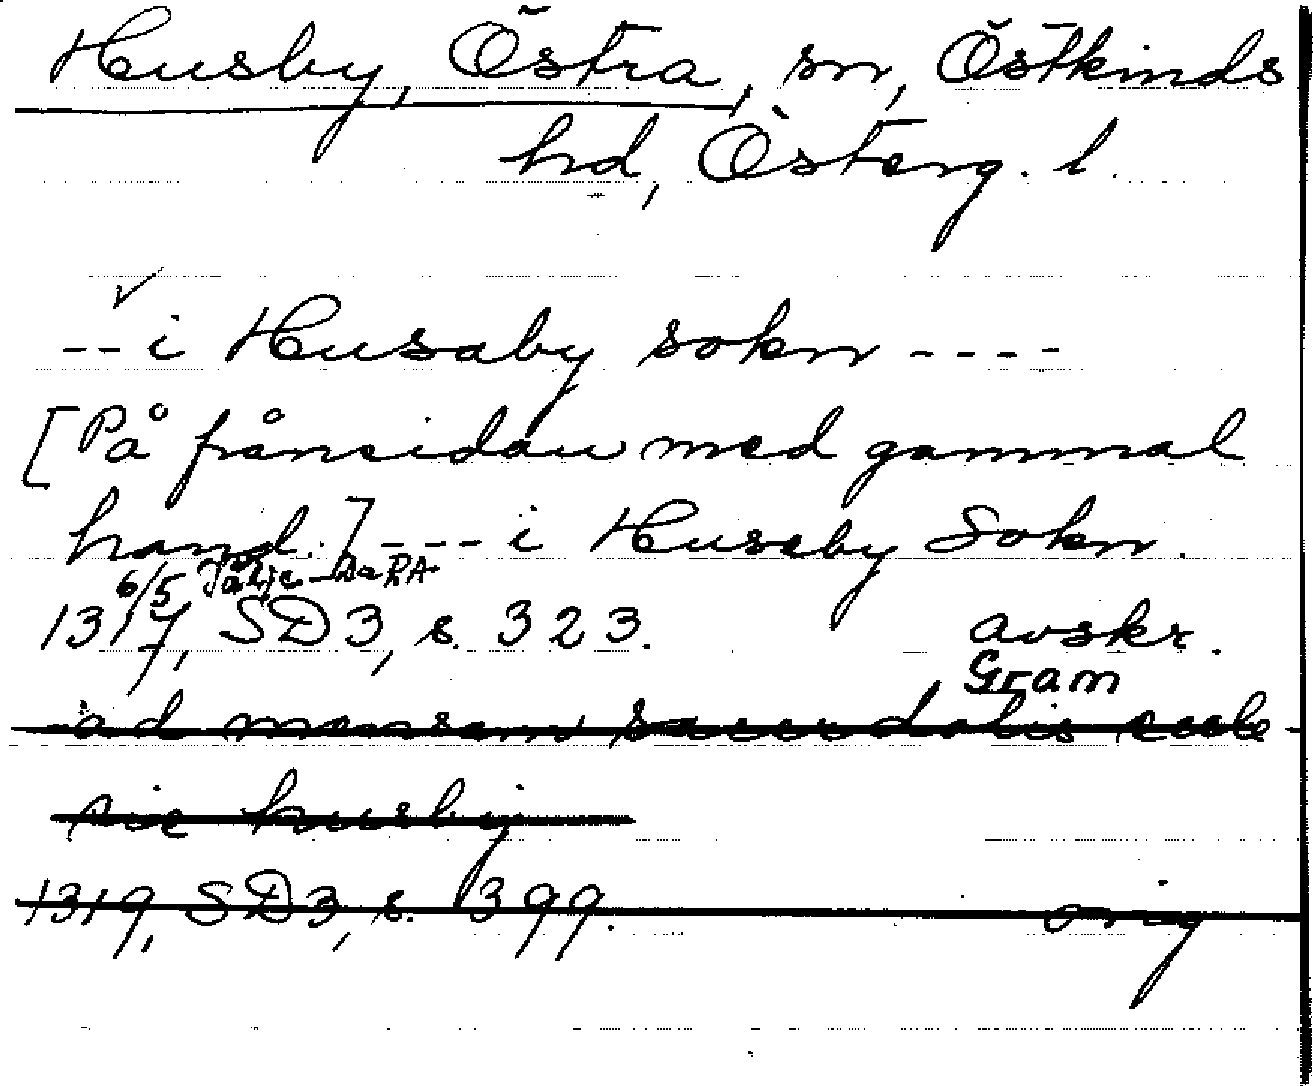 Husby, Östra, sn, Östkinds
hd, Österg. l.
-- i Husaby sokn ----
[På frånsidan med gammal
hand.] ---- i Huseby Sokn.
6/5 RA
1317, SD3, s. 323. avskr.
Gram
ad mensam sacerdotis eccle
sie husby
1319, SD3, s. 399. orig